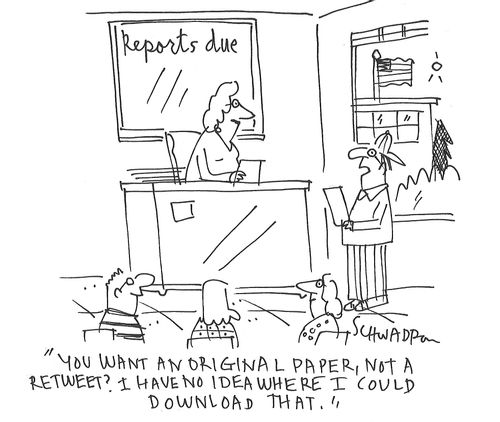 Reports due
SCHWADRON
"YOU WANT AN ORIGINAL PAPER, NOT A
RETWEET? I HAVE NO IDEA WHERE I COULD
DOWNLOAD THAT."